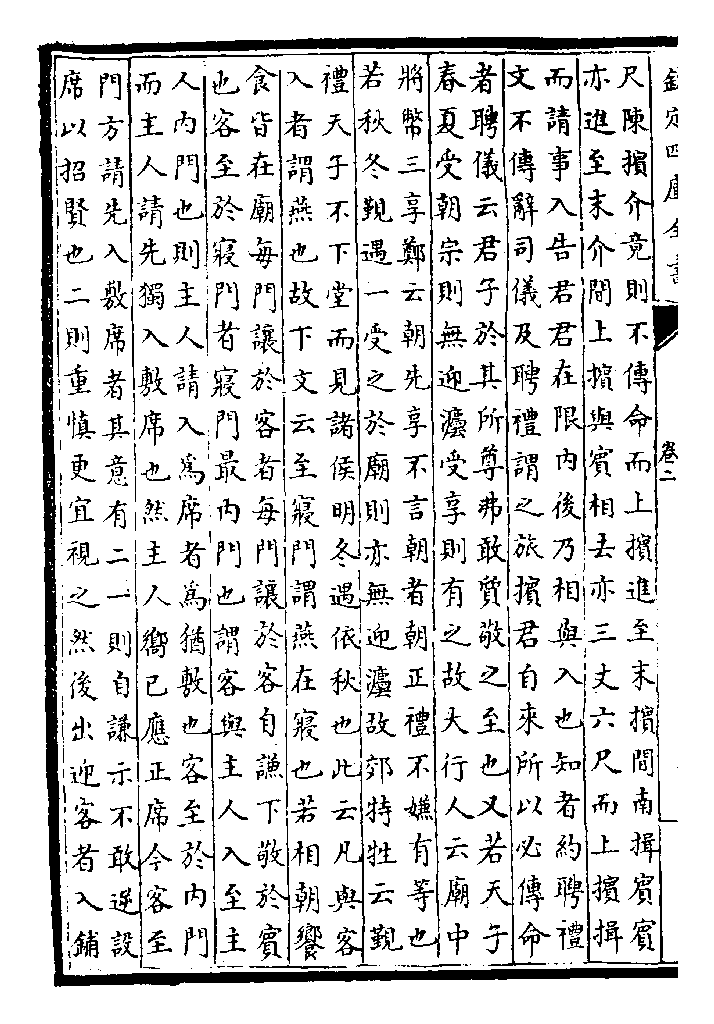 欽定四庫全書
卷二
尺陳擯介竟則不傳命而上擯進至末擯間南揖賓賓
亦進至末介間上擯與賓相去亦三丈六尺而上擯揖
而請事入告君君在限內後乃相與入也知者約聘禮
文不傳辭司儀及聘禮謂之旅擯君自來所以必傳命
者聘儀云君子於其所尊弗敢質敬之至也又若天子
春夏受朝宗則無迎灋受享則有之故大行人云廟中
將幣三享鄭云朝先享不言朝者朝正禮不嫌有等也
若秋冬覲遇一受之於廟則亦無迎灋故郊特牲云覲
禮天子不下堂而見諸侯明冬遇依秋也此云凡與客
入者謂燕也故下文云至寢門謂燕在寢也若相朝饗
食皆在廟每門讓於客者每門讓於客自謙下敬於賓
也客至於寢門者寢門最內門也謂客與主人入至主
人內門也則主人請入爲席者爲猶敷也客至於內門
而主人請先獨入敷席也然主人嚮已應正席今客至
門方請先入敷席者其意有二一則自謙示不敢逆設
席以招賢也二則重慎更宜視之然後出迎客者入鋪